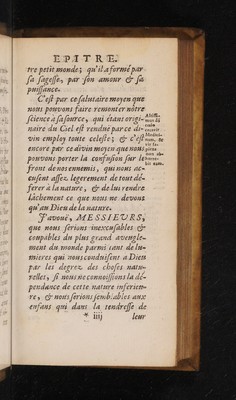 EPITRE.
tre petit monde; qu'il a formé par
sa sagesse, par son amour & sa
puissance.
C'est par ce salutaire moyen que
nous pouvons faire remonter nôtre
science à sa source, qui étant origi-
naire du Ciel est rendué par ce di-
vin employ toute celeste; & c'est
encore par ce divin moyen que nous
pouvons porter la confusion sur le
front de nos ennemis, qui nous ac-
cusent assez legerement de tout dé-
ferer à la nature, & de lui rendre
lâchement ce que nous ne devons
qu'au Dieu de la nature.
J'avoüe, MESSIEURS,
que nous serions inexcusables &
coupables du plus grand aveugle-
ment du monde parmi tant de lu-
mieres qui nous conduisent à Dieu
par les degrez des choses natu-
relles, si nous ne connoissions la dé-
pendance de cette nature inferieu-
re, & nous serions semblables aux
enfans qui dans la tendresse de
* iiij leur